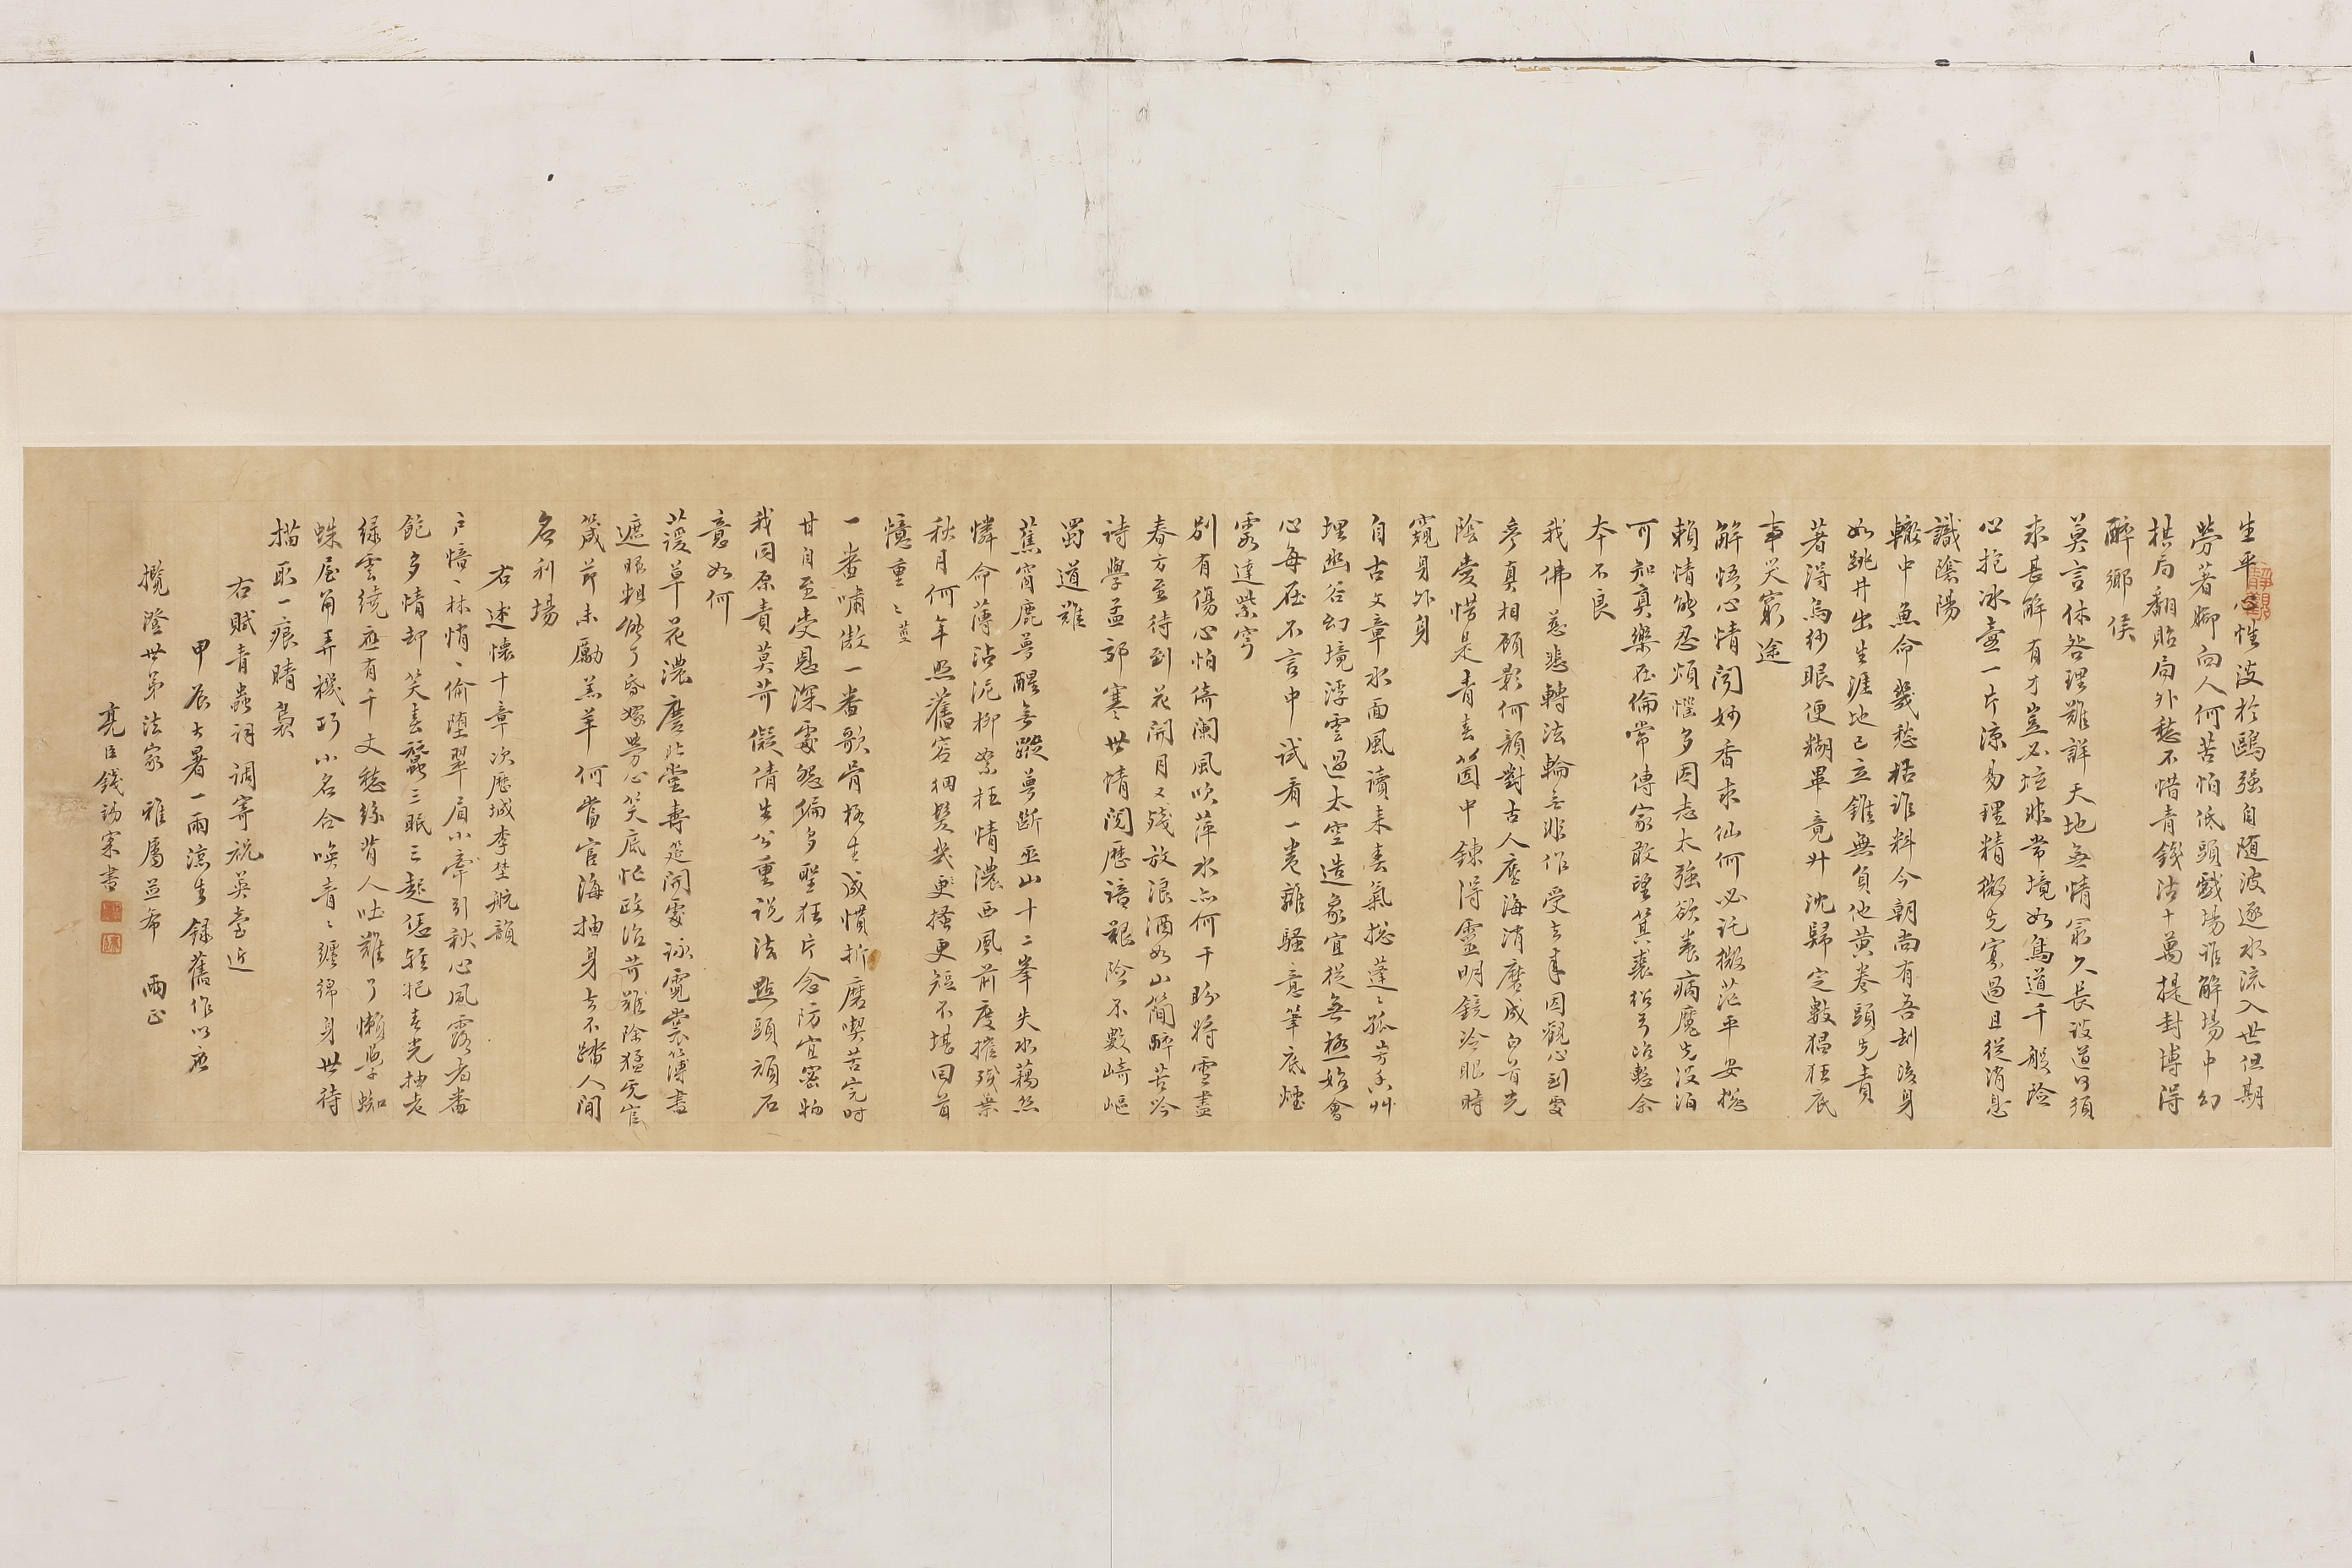 生平心性波於鷗強自隨波逐水流入世但期
勞著腳向人何苦怕低頭戲場誰解場中幻
棋局翻貽局外愁不惜青錢沽十萬提封博得
醉鄉侯
莫言休咎理難詳天地無情家久長設道何須
求甚解有才豈必垣非常境如鳥道千般險
心抱冰壺一片涼易理精微先寡過且從消息
識陰陽
轍中魚命幾愁枯誰料今朝尚有吾刮後身
如跳井出生涯地已立錐無負他黃卷頭先責
著得烏紗眼便糊畢竟升沈歸定數猖狂底
事哭窮途
解悟心情聞妙香求仙何必託微茫平安攏
賴情能忍煩惱多因志太強欲養病魔先沒泊
可知真樂在倫常傳家敢望箕裘紹弓冶慙余
本不良
我佛慈悲轉法輪無非作受去來因觀心到處
參真相顧影何顏對古人塵海消磨成白首光
陰愛惜是青春箇中鍊得靈明鏡冷眼時
窺身外身
自古文章水面風讀來春氣總蓬蓬孤芳香艸
埋幽谷幻境浮雲過太空造象宜從無極始會
心每在不言中試看一卷離騷意筆底煙
雲達紫穹
別有傷心怕倚闌風吹萍水亦何干盼將雪盡
春方至待到花開月又殘放浪酒如山簡醉苦吟
詩學孟郊寒世情閱歷諳艱險不數崎嶇
蜀道難
蕉窗鹿夢醒無蹤夢斷巫山十二峯失水藕絲
憐命薄沾泥柳絮枉情濃西風前度摧殘葉
秋月何年照舊容綢髮幾更搔更短不堪回首
憶重重
一番嘯傲一番歌骨格生成慣折磨喫苦完時
甘自至受恩深處怨偏多聖狂片念防宜密物
我同原責莫苛儗倩生公重說法點頭頑石
意如何
萱草花濃慶北堂壽筵開處詠霓裳簿書
遮眼粗能了昏嫁勞心笑底忙政治苛難除猛虎宦
箴節未勵羔羊何當官海抽身去不踏人間
名利場
右述懷十章次歷城李埜航韻
戶愔愔林悄悄偷墮翠眉小牽引秋心風露者番
飽多情却笑春蠶三眠三起恁輕把春光抽老
綠雲繞應有千丈愁絲背人吐難了懶學蜘
蛛屋角弄機巧小名合喚青青纏綿身世待
描取一痕晴裊
右賦青蟲詞調寄祝英臺近
甲辰大暑一雨涼生錄舊作以應
攬澄世弟法家 雅屬並希 兩正
亮臣錢錫寀書